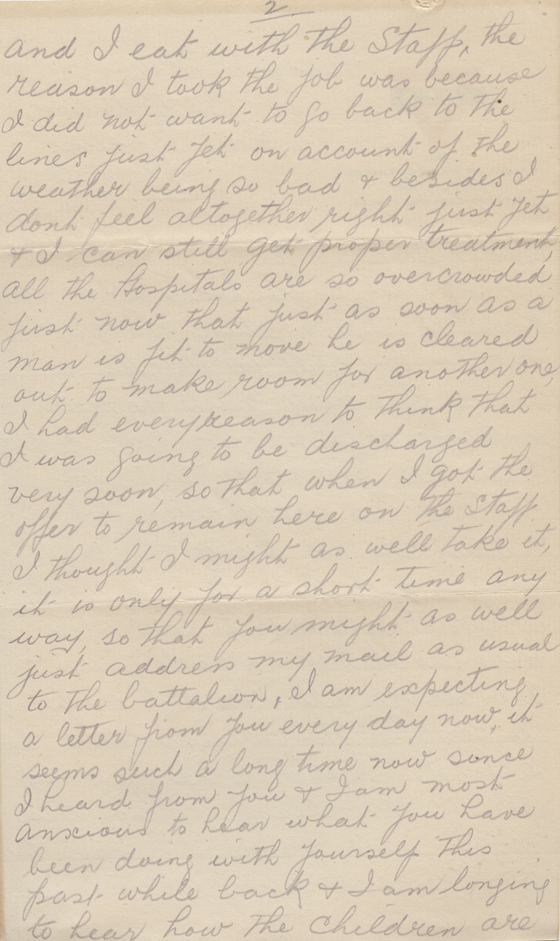 2
and I eat with the Staff, the
reason I took the job was because
I did not want to go back to the
lines just yet on account of the
weather being so bad & besides I
dont feel altogether right just yet
& I can still get proper treatment,
all the Hospitals are so overcrowded
just now that just as soon as a
man is fit to move he is cleared
out to make room for another one,
I had every reason to think that
I was going to be discharged
very soon, so that when I got the
offer to remain here on the Staff
I thought I might as well take it,
it is only for a short time any
way, so that you might as well
just address my mail as usual
to the battalion, I am expecting
a letter from you every day now, it
seems such a long time now sonce
I heard from you & I am most
anxious to hear what you have
been doing with yourself this
past while back & I am longing
to hear how the children are